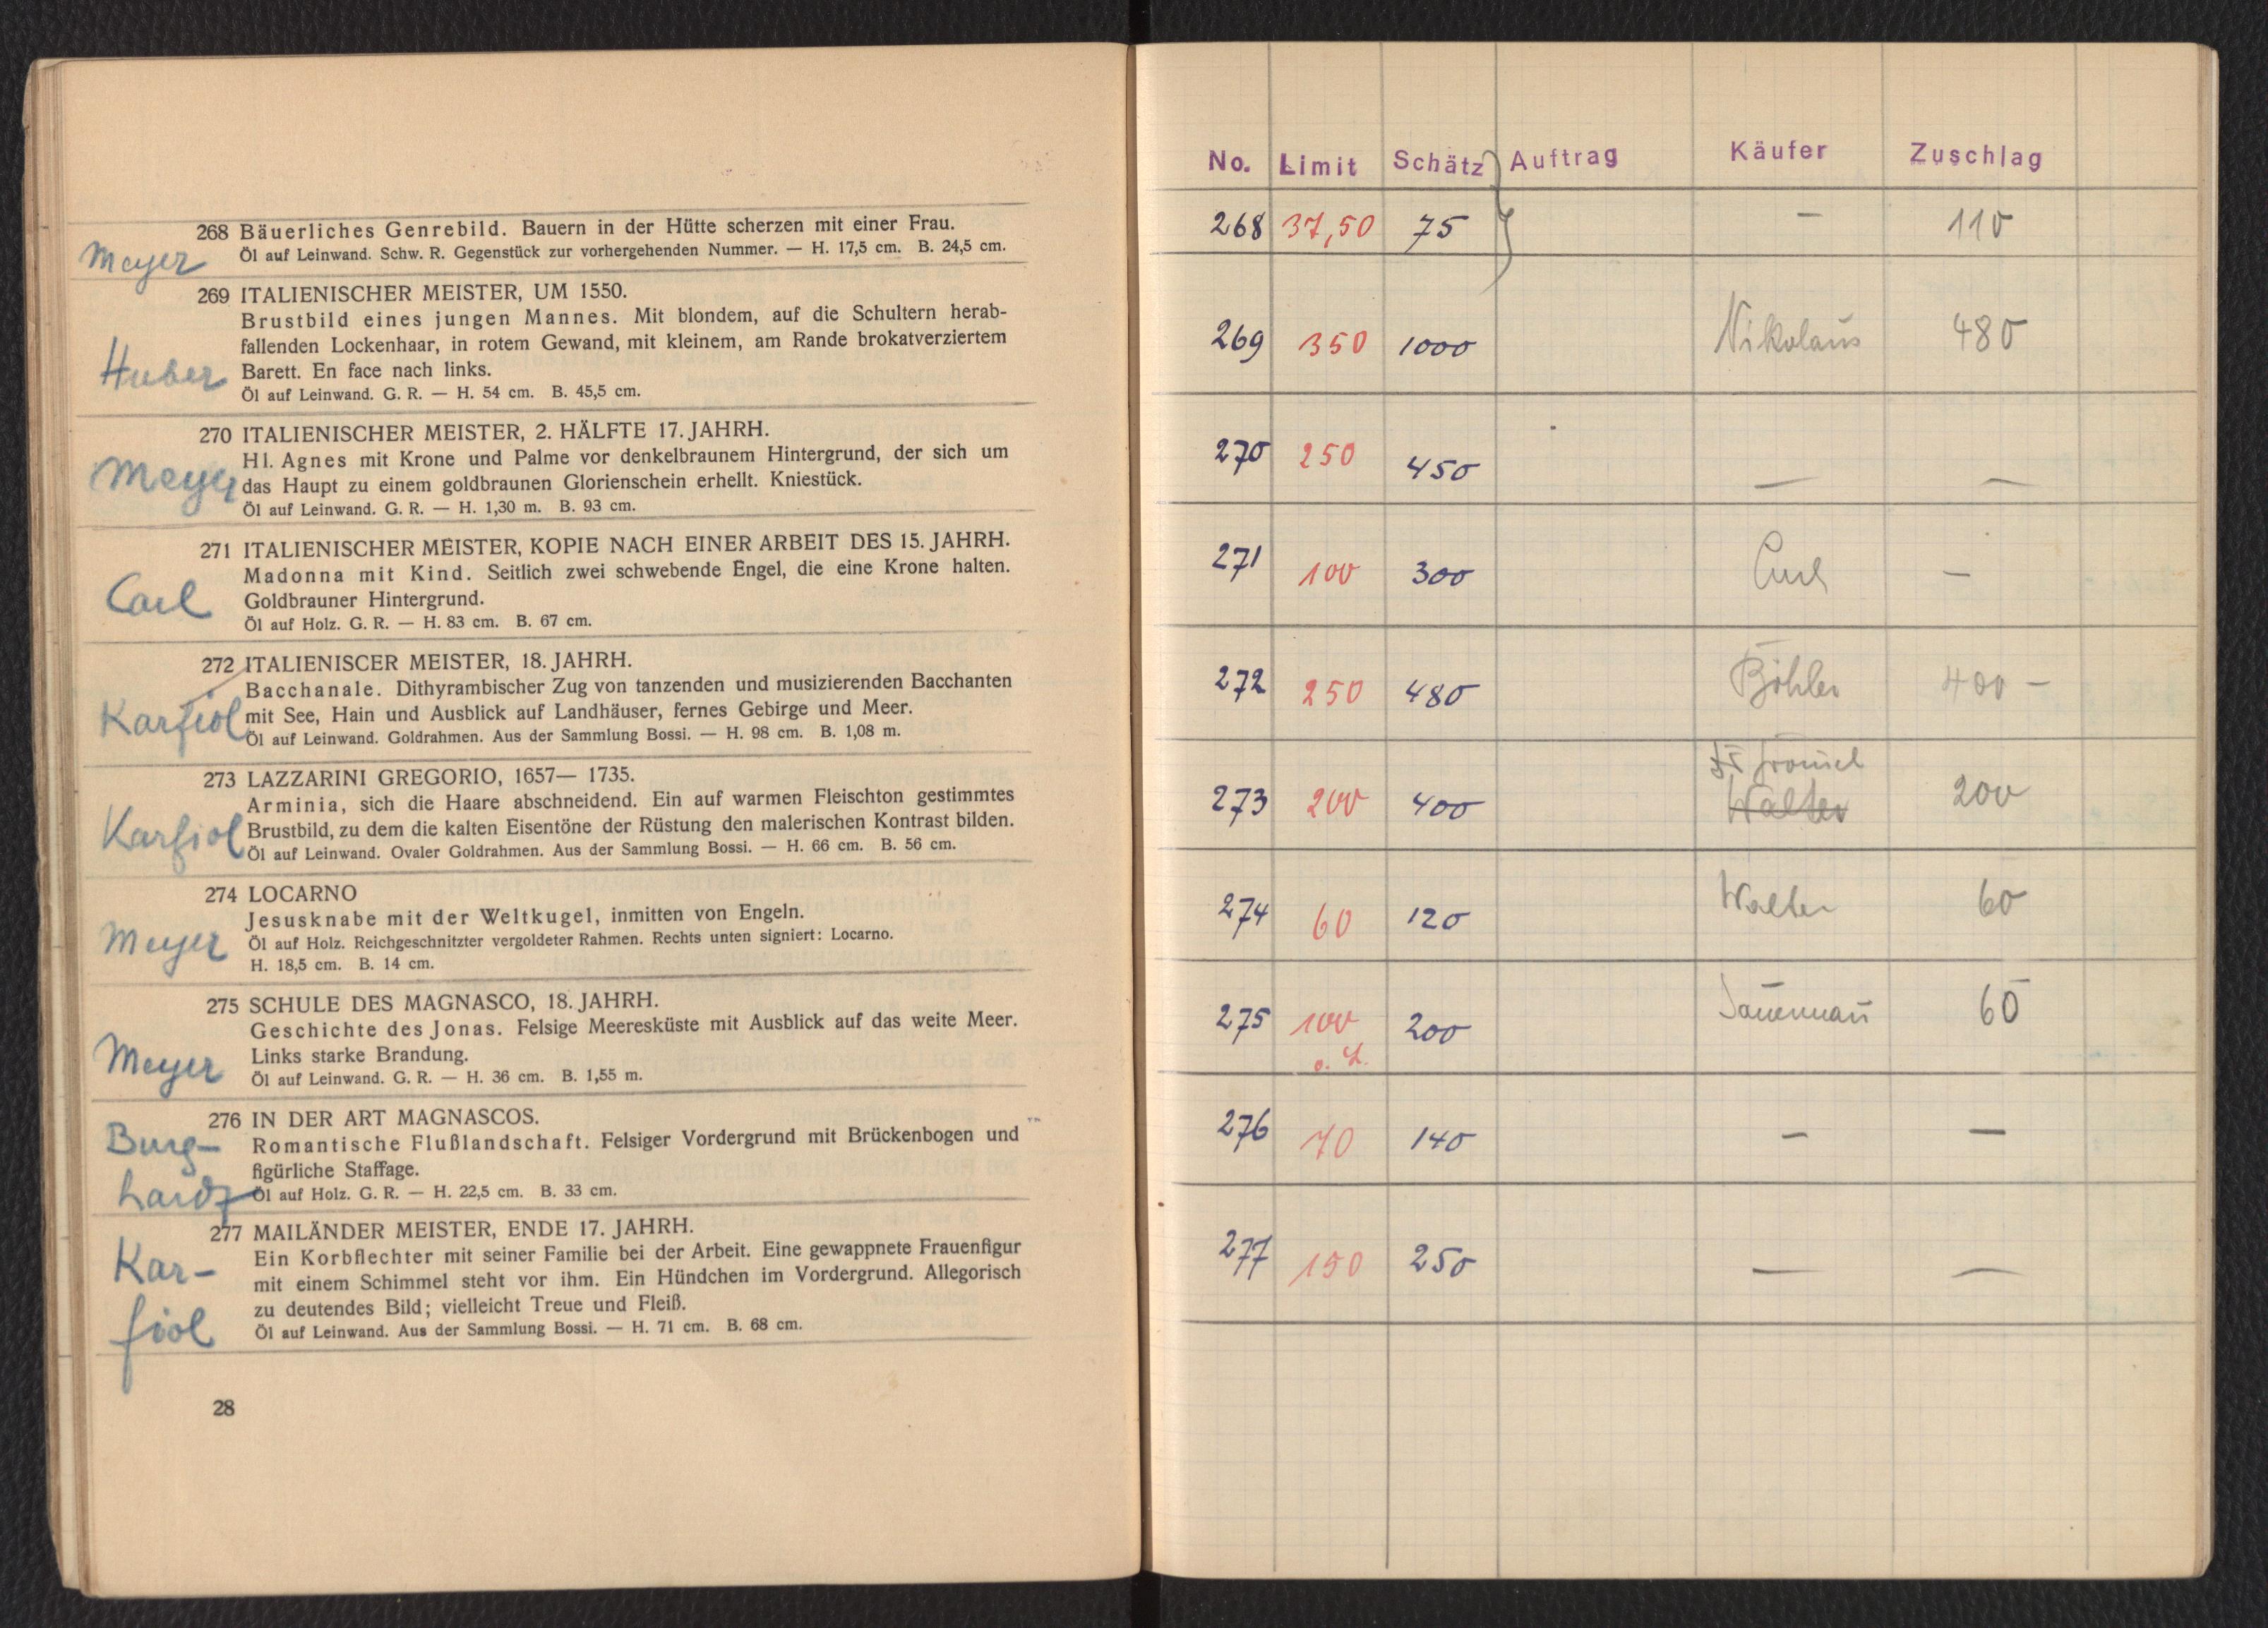 268 Bäuerliches Genrebild. Bauern in der Hütte scherzen mit einer Frau.
Meyer Öl auf Leinwand. Schw. R. Gegenstück zur vorhergehenden Nummer. — H. 17,5 cm. B. 24,5 cm.
269 ITALIENISCHER MEISTER, UM 1550.
Brustbild eines jungen Mannes. Mit blondem, auf die Schultern herab-
fallenden Lockenhaar, in rotem Gewand, mit kleinem, am Rande brokatverziertem
Huber Barett. En face nach links.
Öl auf Leinwand. G. R. — H. 54 cm. B. 45,5 cm.
270 ITALIENISCHER MEISTER, 2. HÄLFTE 17. JAHRH.
Hl. Agnes mit Krone und Palme vor denkelbraunem Hintergrund, der sich um
Meyer das Haupt zu einem goldbraunen Glorienschein erhellt. Kniestück.
Öl auf Leinwand. G. R. — H. 1,30 m. B. 93 cm.
271 ITALIENISCHER MEISTER, KOPIE NACH EINER ARBEIT DES 15. JAHRH.
Madonna mit Kind. Seitlich zwei schwebende Engel, die eine Krone halten.
Carl Goldbrauner Hintergrund.
Öl auf Holz. G. R. — H. 83 cm. B. 67 cm.
272 ITALIENISCER MEISTER, 18. JAHRH.
Bacchanale. Dithyrambischer Zug von tanzenden und musizierenden Bacchanten
Karfiol mit See, Hain und Ausblick auf Landhäuser, fernes Gebirge und Meer.
Öl auf Leinwand. Goldrahmen. Aus der Sammlung Bossi. — H. 98 cm. B. 1,08 m.
273 LAZZARINI GREGORIO, 1657— 1735.
Arminia, sich die Haare abschneidend. Ein auf warmen Fleischton gestimmtes
Karfiol Brustbild, zu dem die kalten Eisentöne der Rüstung den malerischen Kontrast bilden.
Öl auf Leinwand. Ovaler Goldrahmen. Aus der Sammlung Bossi. — H. 66 cm. B. 56 cm.
274 LOCARNO
Jesusknabe mit der Weltkugel, inmitten von Engeln.
Meyer Öl auf Holz. Reichgeschnitzter vergoldeter Rahmen. Rechts unten signiert: Locarno.
H. 18,5 cm. B. 14 cm.
275 SCHULE DES MAGNASCO, 18. JAHRH.
Geschichte des Jonas. Felsige Meeresküste mit Ausblick auf das weite Meer.
Meyer Links starke Brandung.
Öl auf Leinwand. G. R. — H. 36 cm. B. 1,55 m.
276 IN DER ART MAGNASCOS.
Burg- Romantische Flußlandschaft. Felsiger Vordergrund mit Brückenbogen und
figürliche Staffage.
Öl auf Holz. G. R. — H. 22,5 cm. B. 33 cm.
277 MAILÄNDER MEISTER, ENDE 17. JAHRH.
Kar- Ein Korbflechter mit seiner Familie bei der Arbeit. Eine gewappnete Frauenfigur
mit einem Schimmel steht vor ihm. Ein Hündchen im Vordergrund. Allegorisch
fiol zu deutendes Bild; vielleicht Treue und Fleiß.
Öl auf Leinwand. Aus der Sammlung Bossi. — H. 71 cm. B. 68 cm.
28
No. Limit Schätz Auftrag Käufer Zuschlag
268 37,50 75 — 110
269 350 1000 Nikolaus 480
270 250 450 — —
271 100 300 Carl —
272 250 480 Böhler 400 —
273 200 400 Walter 200
274 60 120 Walter 60
275 100 200 60
o. L.
276 70 140 — —
277 150 250 — —